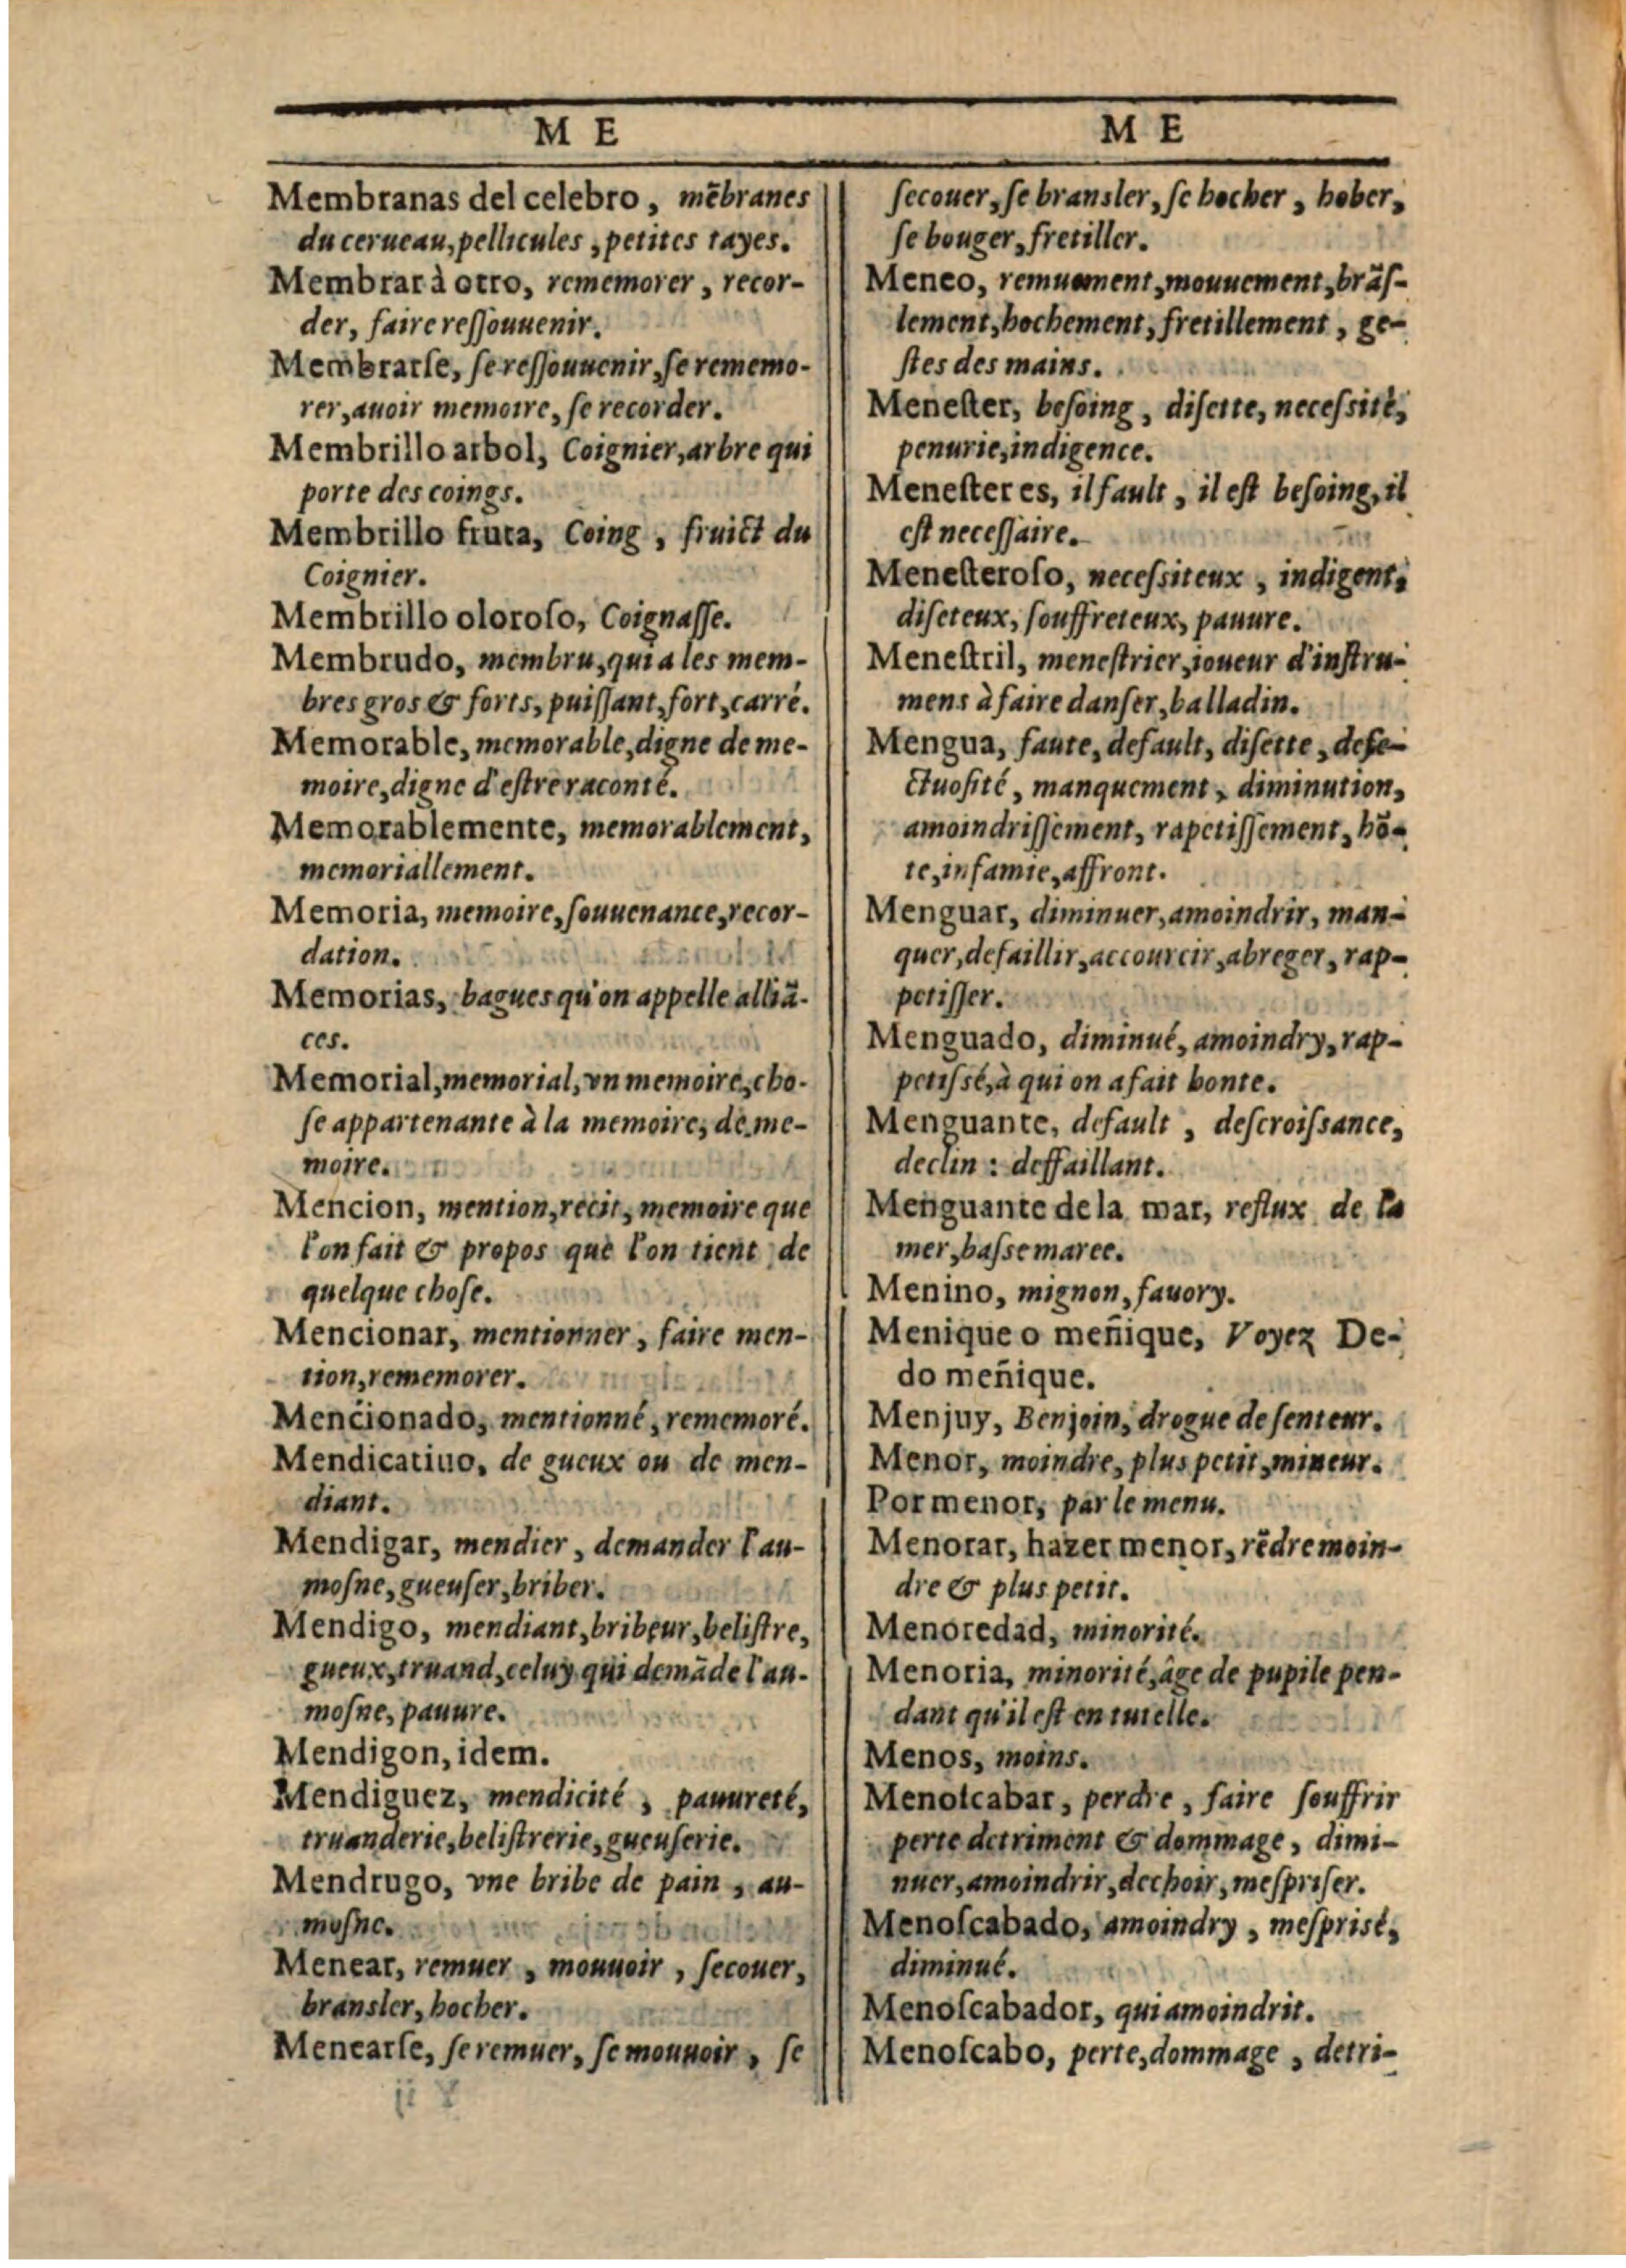 M E
Membranas del celebro, mẽbranes
du cerueau, pellicules, petites tayes.
Membrar à otro, rememorer, recor-
der, faire reſſouuenir.
Membrarſe, ſe reſſouuenir, ſe rememo-
rer, auoir memoire, ſe recorder.
Membrillo arbol, Coignier, arbre qui
porte des coings.
Membrillo fruta, Coing, fruict du
Coignier.
Membrillo oloroſo, Coignaſſe.
Membrudo, membru, qui a les mem-
bres gros & forts, puiſſant, fort, carré.
Memorable, memorable, digne de me-
moire, digne d'eſtre raconté.
Memorablemente, memorablement,
memoriallement.
Memoria, memoire, ſouuenance, recor-
dation.
Memorias, bagues qu'on appelle alliã-
ces.
Memorial, memorial, vn memoire, cho-
ſe appartenante à la memoire, de me-
moire.
Mencion, mention, recit, memoire que
l'on fait & propos que l'on tient de
quelque choſe.
Mencionar, mentionner, faire men-
tion, rememorer.
Mencionado, mentionné, rememoré.
Mendicatiuo, de gueux ou de men-
diant.
Mendigar, mendier, demander l'au-
moſne, gueuſer, briber.
Mendigo, mendiant, bribeur, beliſtre,
gueux, truand, celuy qui demãde l'au-
moſne, pauure.
Mendigon, idem.
Mendiguez, mendicité, pauureté,
truanderie, beliſtrerie, gueuſerie.
Mendrugo, vne bribe de pain, au-
moſne.
Menear, remuer, mouuoir, ſecouer,
bransler, hocher.
Menearſe, ſe remuer, ſe mouuoir, ſe
M E
ſecouer, ſe bransler, ſe hocher, hober,
ſe bouger, fretiller.
Meneo, remuement, mouuement, brãſ-
lement, hochement, fretillement, ge-
ſtes des mains.
Meneſter, beſoing, diſette, neceſsité,
penurie, indigence.
Meneſter es, il fault, il eſt beſoing, il
eſt neceſſaire.
Meneſteroſo, neceſsiteux, indigent,
diſeteux, ſouffreteux, pauure.
Meneſtril, meneſtrier, ioueur d'inſtru-
mens à faire danſer, balladin.
Mengua, faute, default, diſette, defe-
ctuoſité, manquement, diminution,
amoindriſſement, rapetiſſement, hõ-
te, infamie, affront.
Menguar, diminuer, amoindrir, man-
quer, defaillir, accourcir, abreger, rap-
petiſſer.
Menguado, diminué, amoindry, rap-
petiſsé, à qui on a fait honte.
Menguante, default, deſcroiſsance,
declin : deffaillant.
Menguante de la mar, reflux de la
mer, baſse maree.
Menino, mignon, fauory.
Menique o meñique, Voyez De-
do meñique.
Menjuy, Benjoin, drogue de ſenteur.
Menor, moindre, plus petit, mineur.
Por menor, par le menu.
Menorar, hazer menor, rẽdre moin-
dre & plus petit.
Menoredad, minorité.
Menoria, minorité, âge de pupile pen-
dant qu'il eſt en tutelle.
Menos, moins.
Menoſcabar, perdre, faire ſouffrir
perte detriment & dommage, dimi-
nuer, amoindrir, dechoir, meſpriſer.
Menoſcabado, amoindry, meſprisé,
diminué.
Menoſcabador, qui amoindrit.
Menoſcabo, perte, dommage, detri-